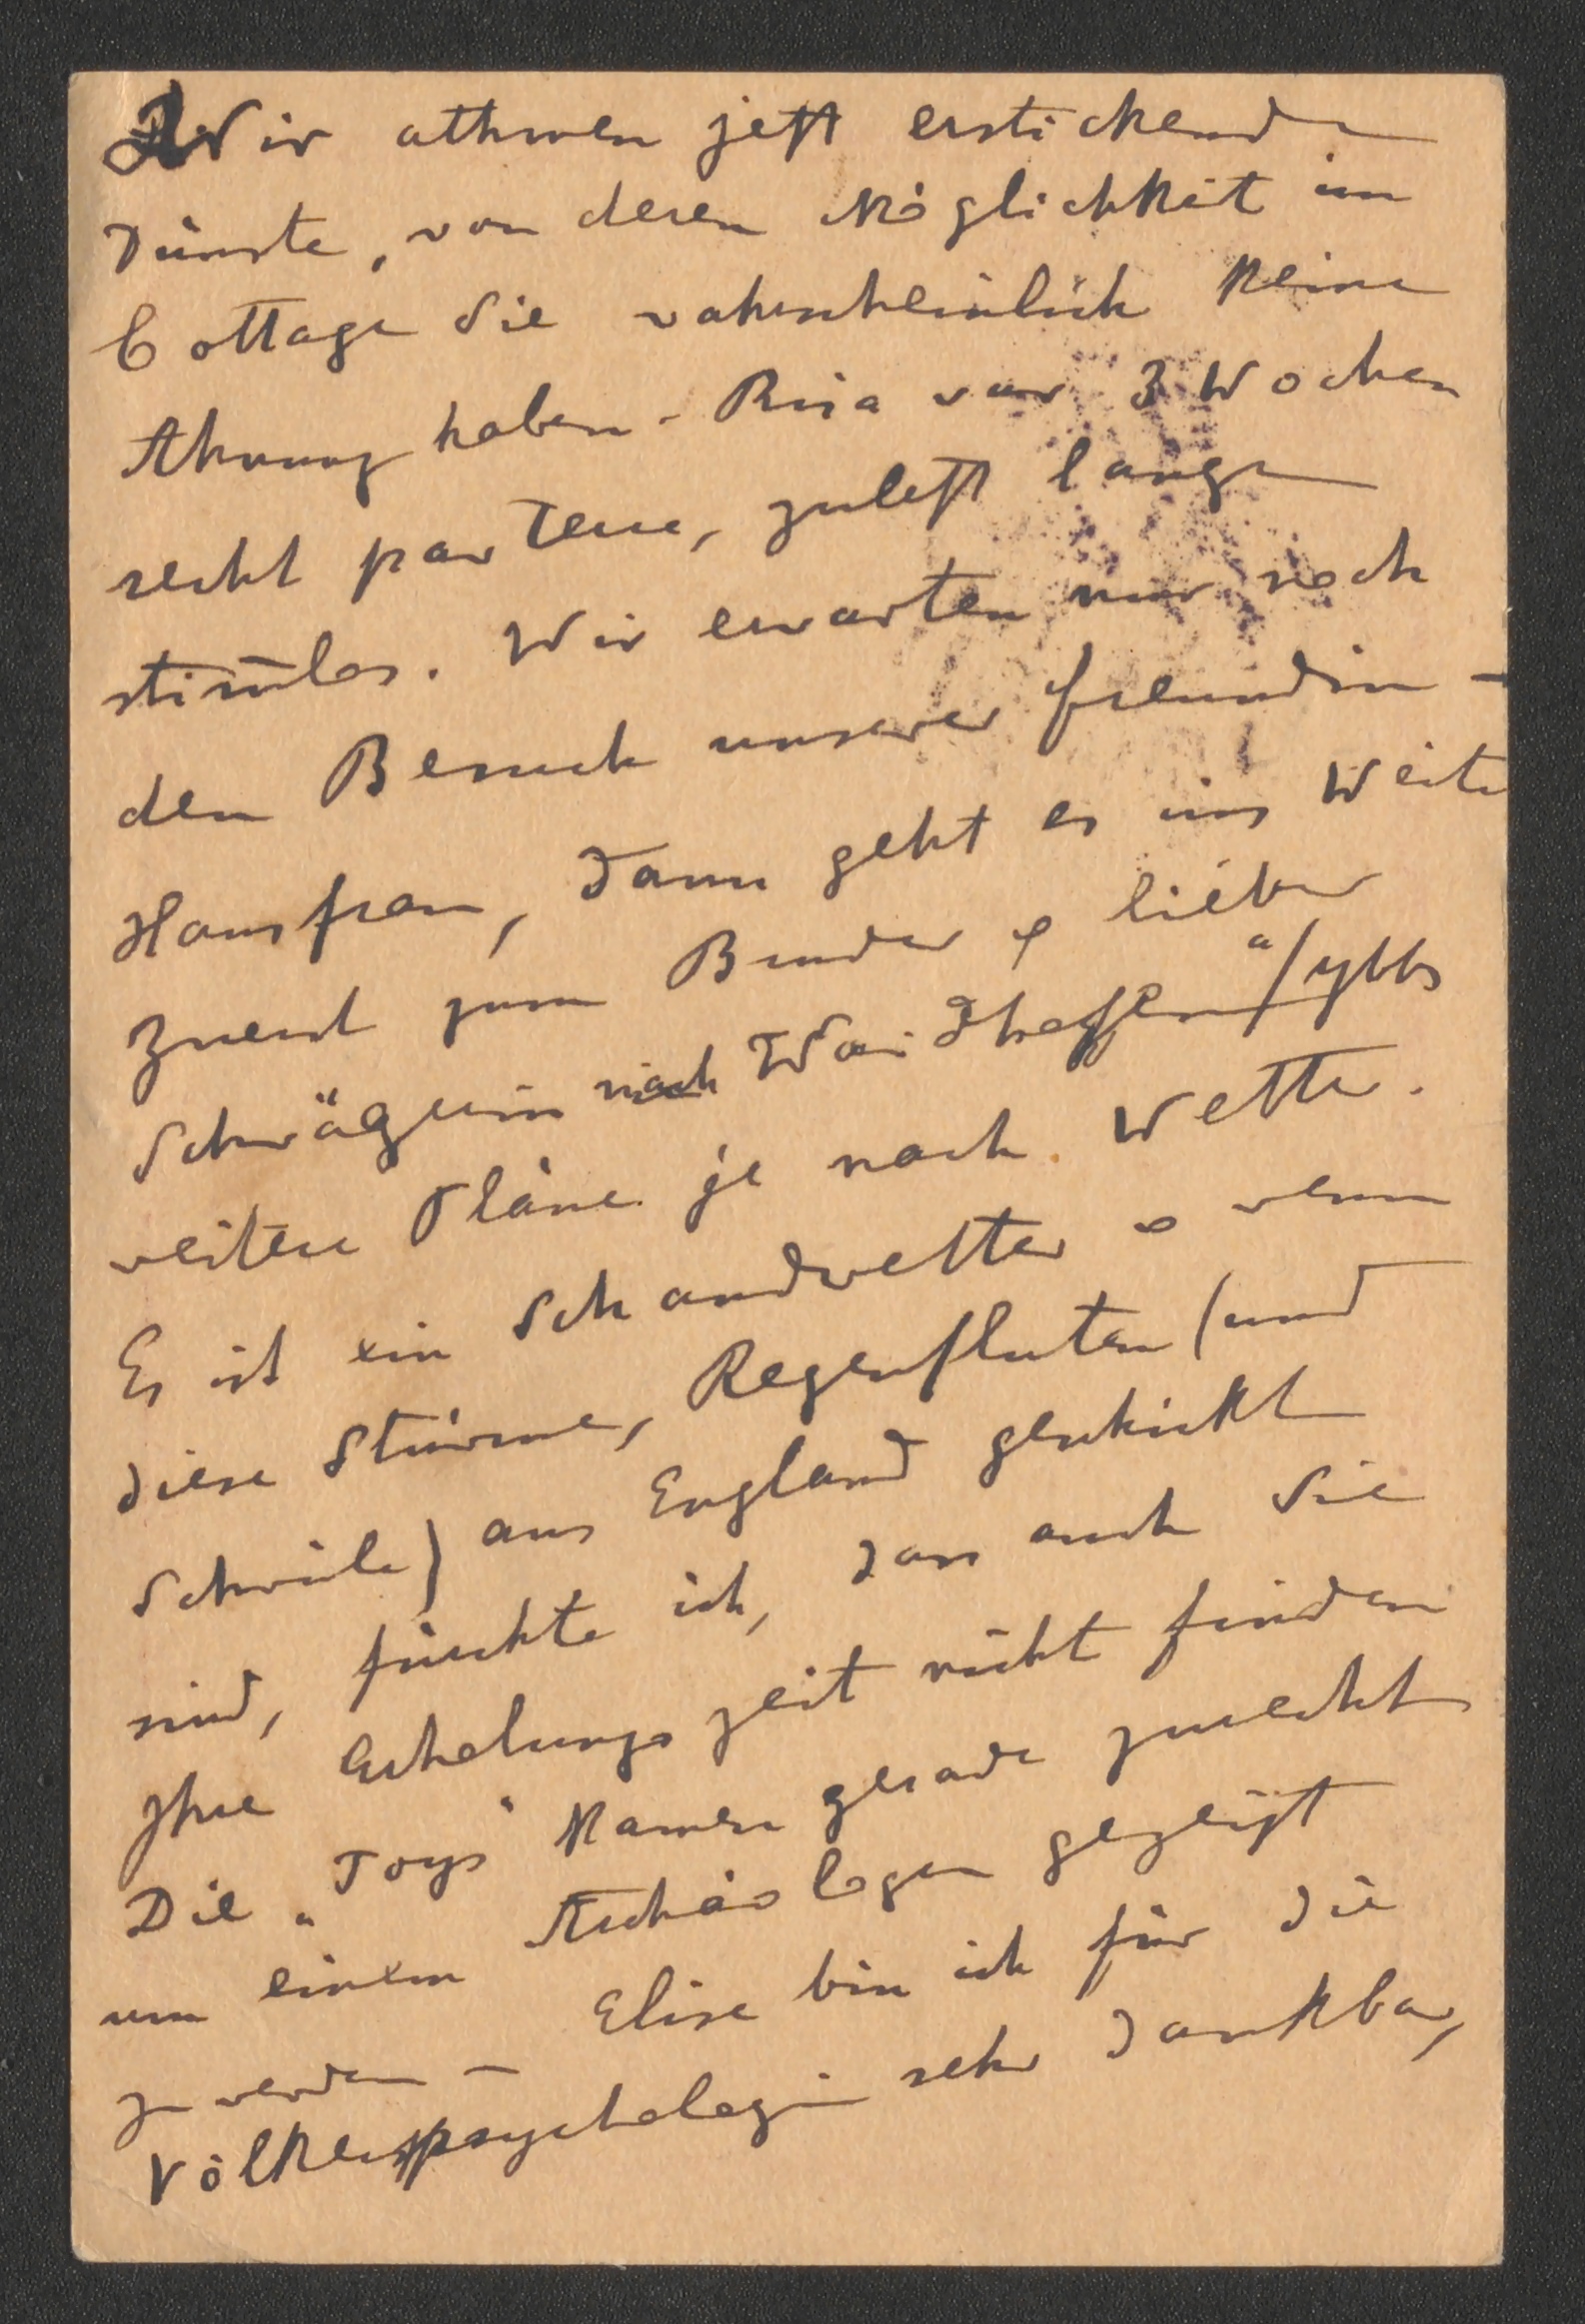 Wir athmen jetzt erstickende
Dünste, von deren Möglichkeit im
Cottage Sie wahrscheinlich keine
Ahnung haben. Risa war 3 Wochen
recht par terre, zuletzt lange
stim̄los. Wir erwarten nur noch
den Besuch unserer freundin-
Hausfrau, dann geht es ins Weite
Zuerst zum Bruder & lieber
Schwägerin nach Waidhofen a/Ybbs
weitere Pläne je nach Wetter.
Es ist ein Schandwetter & wenn
diese Stürme, Regenfluten (und
Schwüle) aus England geschickt
sind, fürchte ich, dass auch Sie
Ihre Erholungszeit nicht finden
Die „Toys" kamen gerade zurecht
um einem Archäologen gezeigt
zu werden – Elise bin ich für die
Völkerpsychologie sehr dankbar,